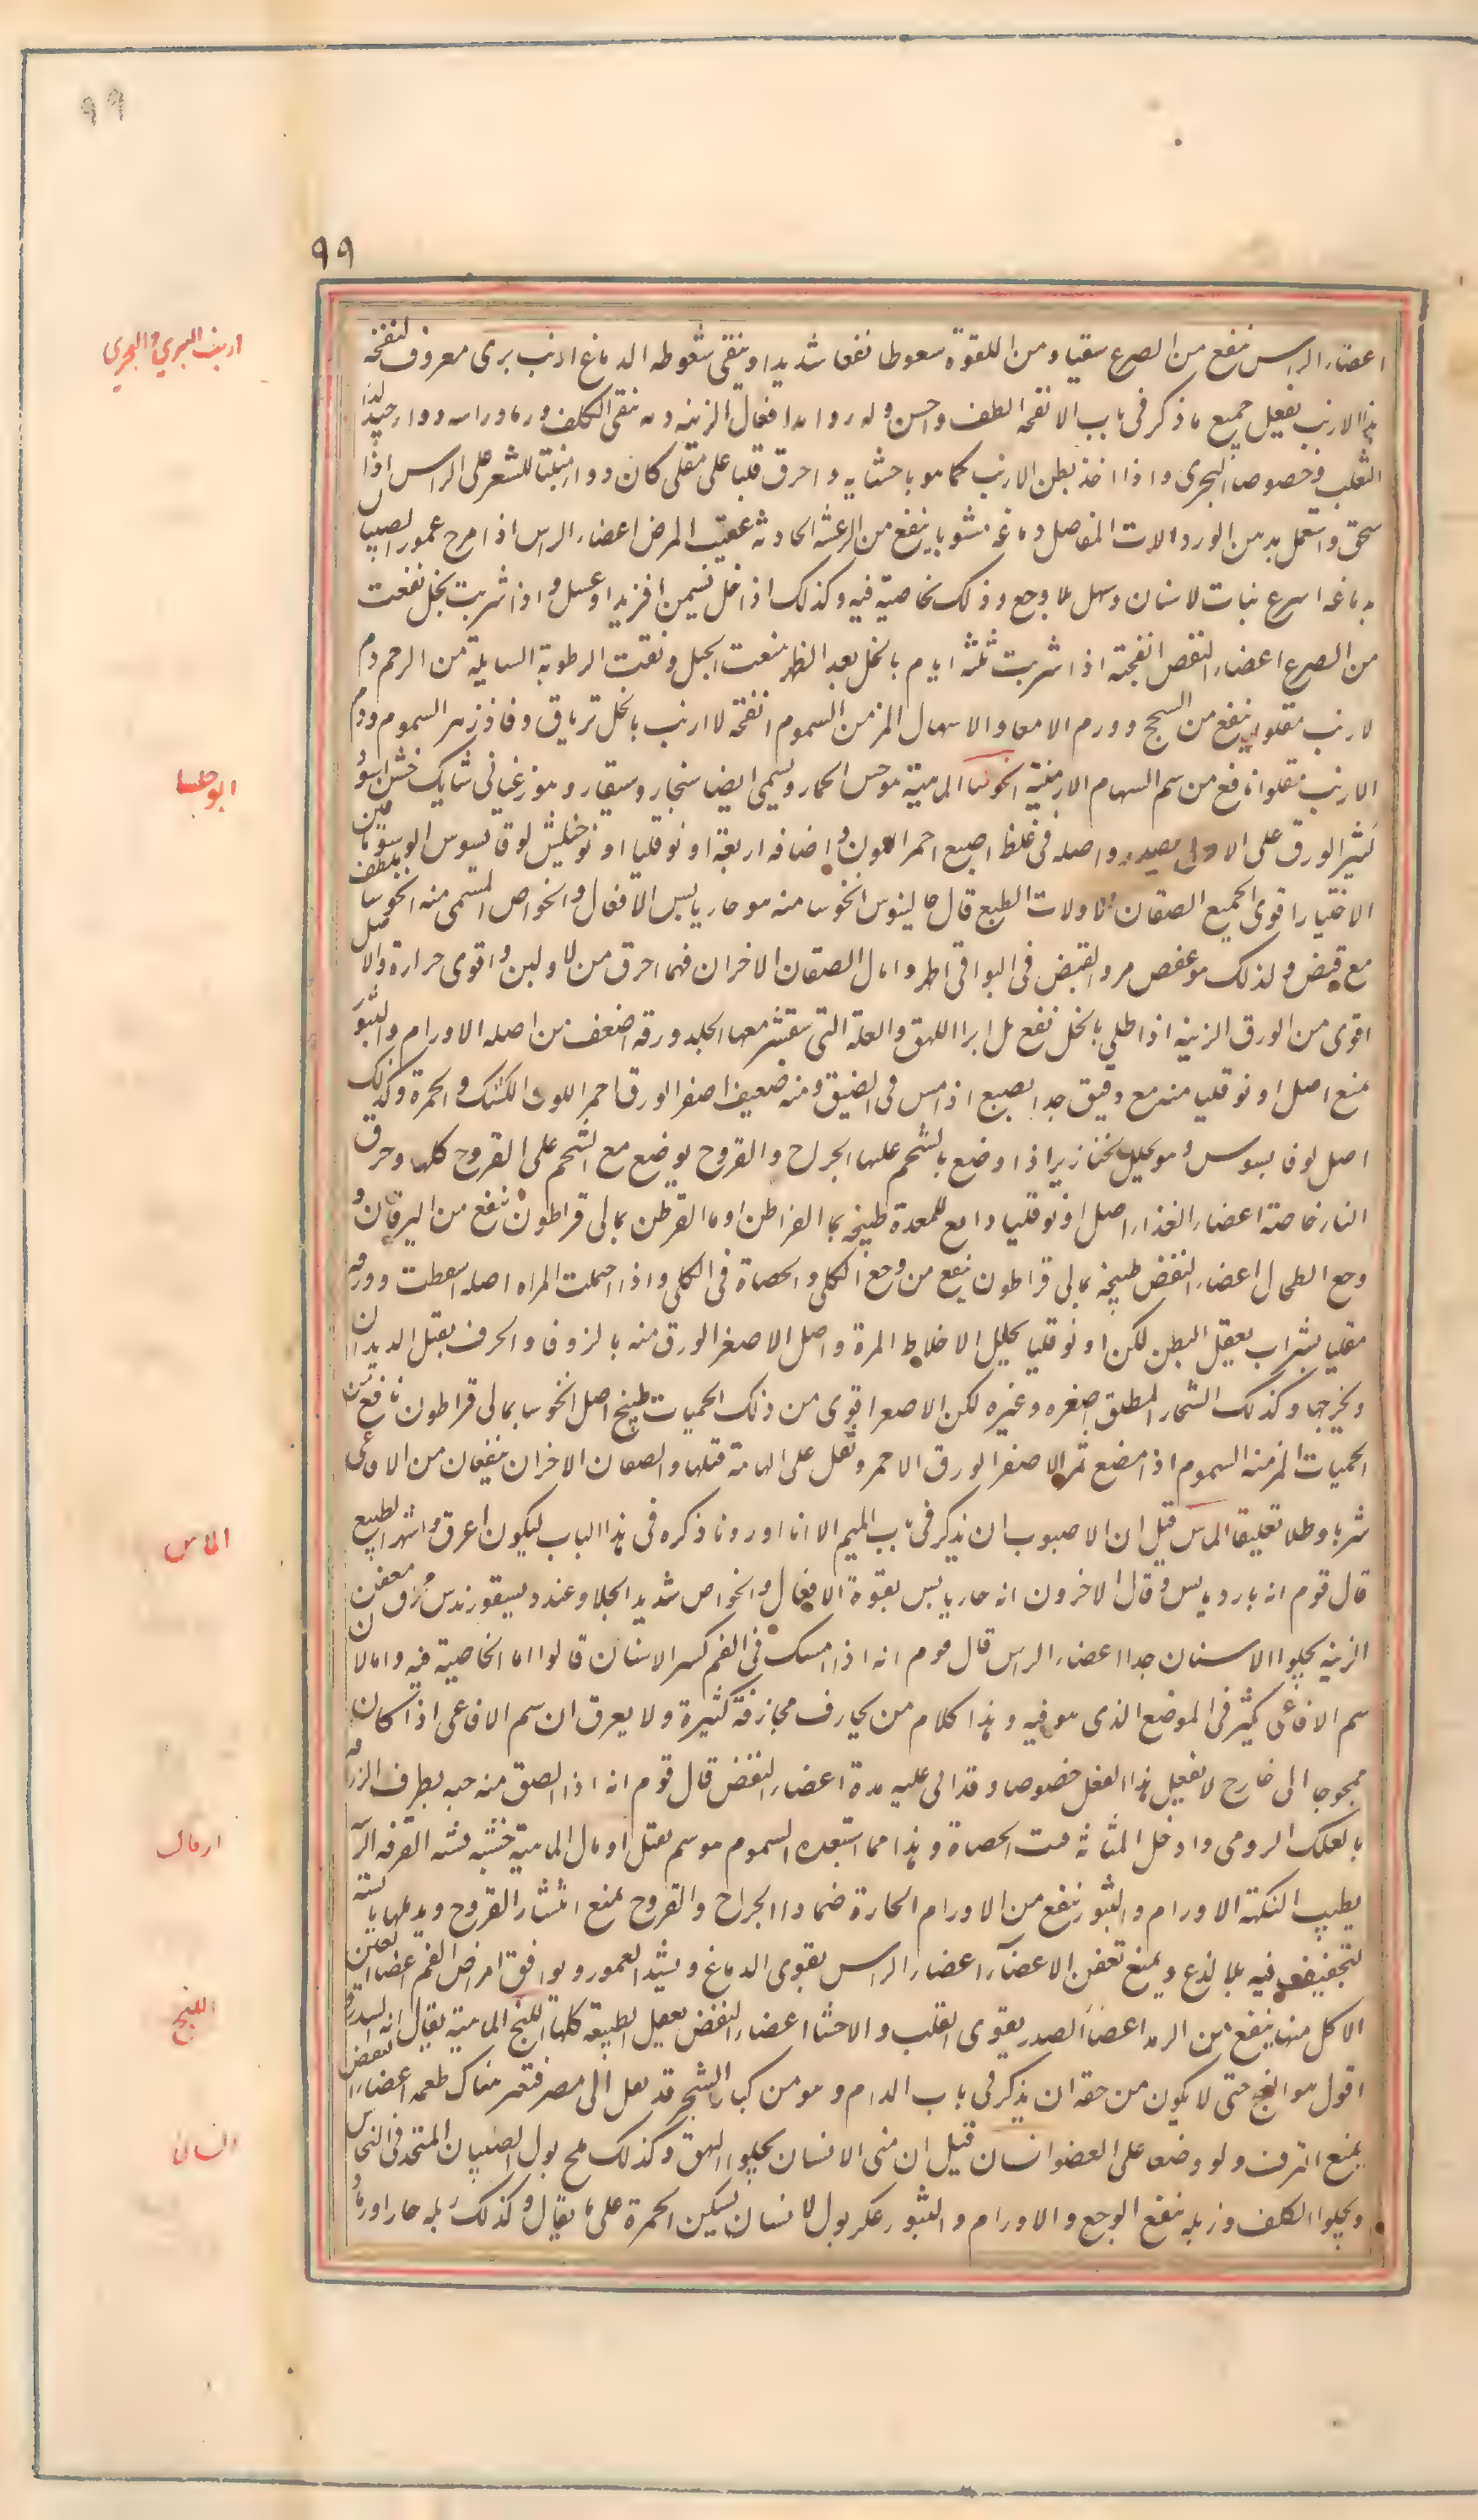 ٩٩
٩٩
ارنب البري والبحري
اعضاء الراس ينفع من الصرع سقيا ومن اللقوة سعوطا نفعا شديدا وينقي سعوطه الدماغ ارنب بري معروف انفحة
هذا الارنب يفعل جميع ما ذكر في باب الانفحه الطف واحسن وله افعال الزينه دمه ينقي الكلف ورماد راسه دواء جيد لداء
الثعلب وخصوصا البحري واذا اخذ بطن الارنب كما هو باحشايه واحرق قليا على مقلى كان دواء منبتا للشعر على الراس اذا
سحق واستعمل بدهن الورد الات المفاصل دماغه مشويا ينفع من الرعشه الحادثه عقيب المرض اعضاء الراس اذا مرخ عمور الصبيان
بدماغه اسرع نبات الاسنان وسهل بلا وجع وذلك بخاصيته فيه وكذلك اذا حل بسمن او زبد او عسل واذا شربت بخل نفعت
من الصرع اعضاء النفض انفحته اذا شربت ثلثه ايام بالخل بعد الطهر منعت الحبل ونقت الرطوبة السايلة من الرحم ودم
الارنب مقلوا ينفع من السحج وورم الامعاء والاسهال المزمن السموم انفحة الارنب بالخل ترياق وفادزهر السموم ودم
الارنب مقلوا نافع من سم السهام الارمنية انخوسا الماهية هو خس الحمار ويسمى ايضا شنجار وشنقار وهو زغباني شايك خشن اسود
ابو حلسا
كثير الورق على الاصل واصله في غلظ اصبع احمر اللون واصنافه اربعة اونوقليا
الاختيار اقوى الجميع الصنفان الاولات الطبع قال جالينوس انخوسا منه هو حار يابس الافعال والخواص المسمى منه انخوسا ملطف
مع قبض ولذلك هو عفص مر والقبض في البواقي اظهر واما الصنفان الاخران فهما احرق من الاولين واقوى حرارة والاصل
اقوى من الورق الزينه اذا طلي بالخل نفع بل ابرا البهق والعلة التي يتقشر معها الجلد ورقه اضعف من اصله الاورام والبثور
اصل لوقابسوس وهو يحلل الخنازير اذا وضع بالشحم عليها الجراح والقروح يوضع مع الشحم على القروح كلها وحرق
النار خاصة اعضاء الغذاء اصل اونوقليا دابغ للمعدة طبيخه بماء القراطن او بمالي قراطون ينفع من اليرقان و
وجع الطحال اعضاء النفض طبيخه بمالي قراطون ينفع من وجع الكلي والحصاة في الكلي واذا احتملت المراه اصله اسقطت وورقه
مقليا بشراب يعقل البطن لكن اونوقليا يحلل الاخلاط المرة واصل الاصغر الورق منه بالزوفا والحرف يقتل الديدان
ويخرجها وكذلك الشنجار المطلق اصغره وغيره لكن الاصغر اقوى من ذلك الحميات طبيخ اصل انخوسا بمالي قراطون نافع من
الحميات المزمنه السموم اذا مضغ ثمر الاصغر الورق الاحمر وتفل على الهامة قتلها والصنفان الاخران ينفعان من الافاعى
شربا وطلا وتعليقا الماس قيل ان الاصوب ان يذكر في باب الميم الا انا اوردنا ذكره في هذا الباب ليكون اعرق واشهر الطبع
الماس
قال قوم انه بارد يابس وقال الاخرون انه حار يابس بقوة الافعال والخواص شديد الجلا وعند ديسقوريدس محرق معفن
الزينه يجلوا الاسنان جدا اعضاء الراس قال قوم انه اذا امسك في الفم كسر الاسنان قالوا اما الخاصية فيه واما لان
سم الافاعى كثير في الموضع الذي هو فيه وهذا كلام من يجازف مجازفة كثيرة ولا يعرف ان سم الافاعى اذا كان
ممجوجا الى خارج لا يفعل هذا الفعل خصوصا وقد اتى عليه مدة اعضاء النفض قال قوم انه اذا الصق منه حبه بطرف الزراقه
بالعلك الرومى وادخل المثانة فتت الحصاة وهذا مما استبعده السموم هو سم يقتل ارمال الماهية خشبه تشبه القرفه
ارمال
يطيب النكهة الاورام والبثور ينفع من الاورام الحارة ضمادا الجراح والقروح يمنع انتشار القروح ويدملها
لتجفيف فيه بلا لذع ويمنع تعفن الاعضآء اعضاء الراس يقوي الدماغ ويشد العمور ويوافق امراض الفم اعضاء العين
الاكل منها ينفع من الرمد اعضآء الصدر يقوى القلب والاحشا اعضاء النفض يعقل الطبيعة كلها اللبخ الماهية يقال انه السدر
اللبخ
اقول هو اللبخ حتى لا يكون من حقه ان يذكر في باب اللام وهو من كبار الشجر قد نقل الى مصر فتغير هناك طعمه اعضاء النفض
يمنع النزف ولو وضعا على العضو انسان قيل ان منى الانسان يجلوا البهق وكذلك ملح بول الصبيان المتخذ في النحاس
انسان
ويجلوا الكلف وزبله ينفع الوجع والاورام والبثور عكر بول الانسان يسكن الحمرة على ما يقال وكذلك زبله حارا